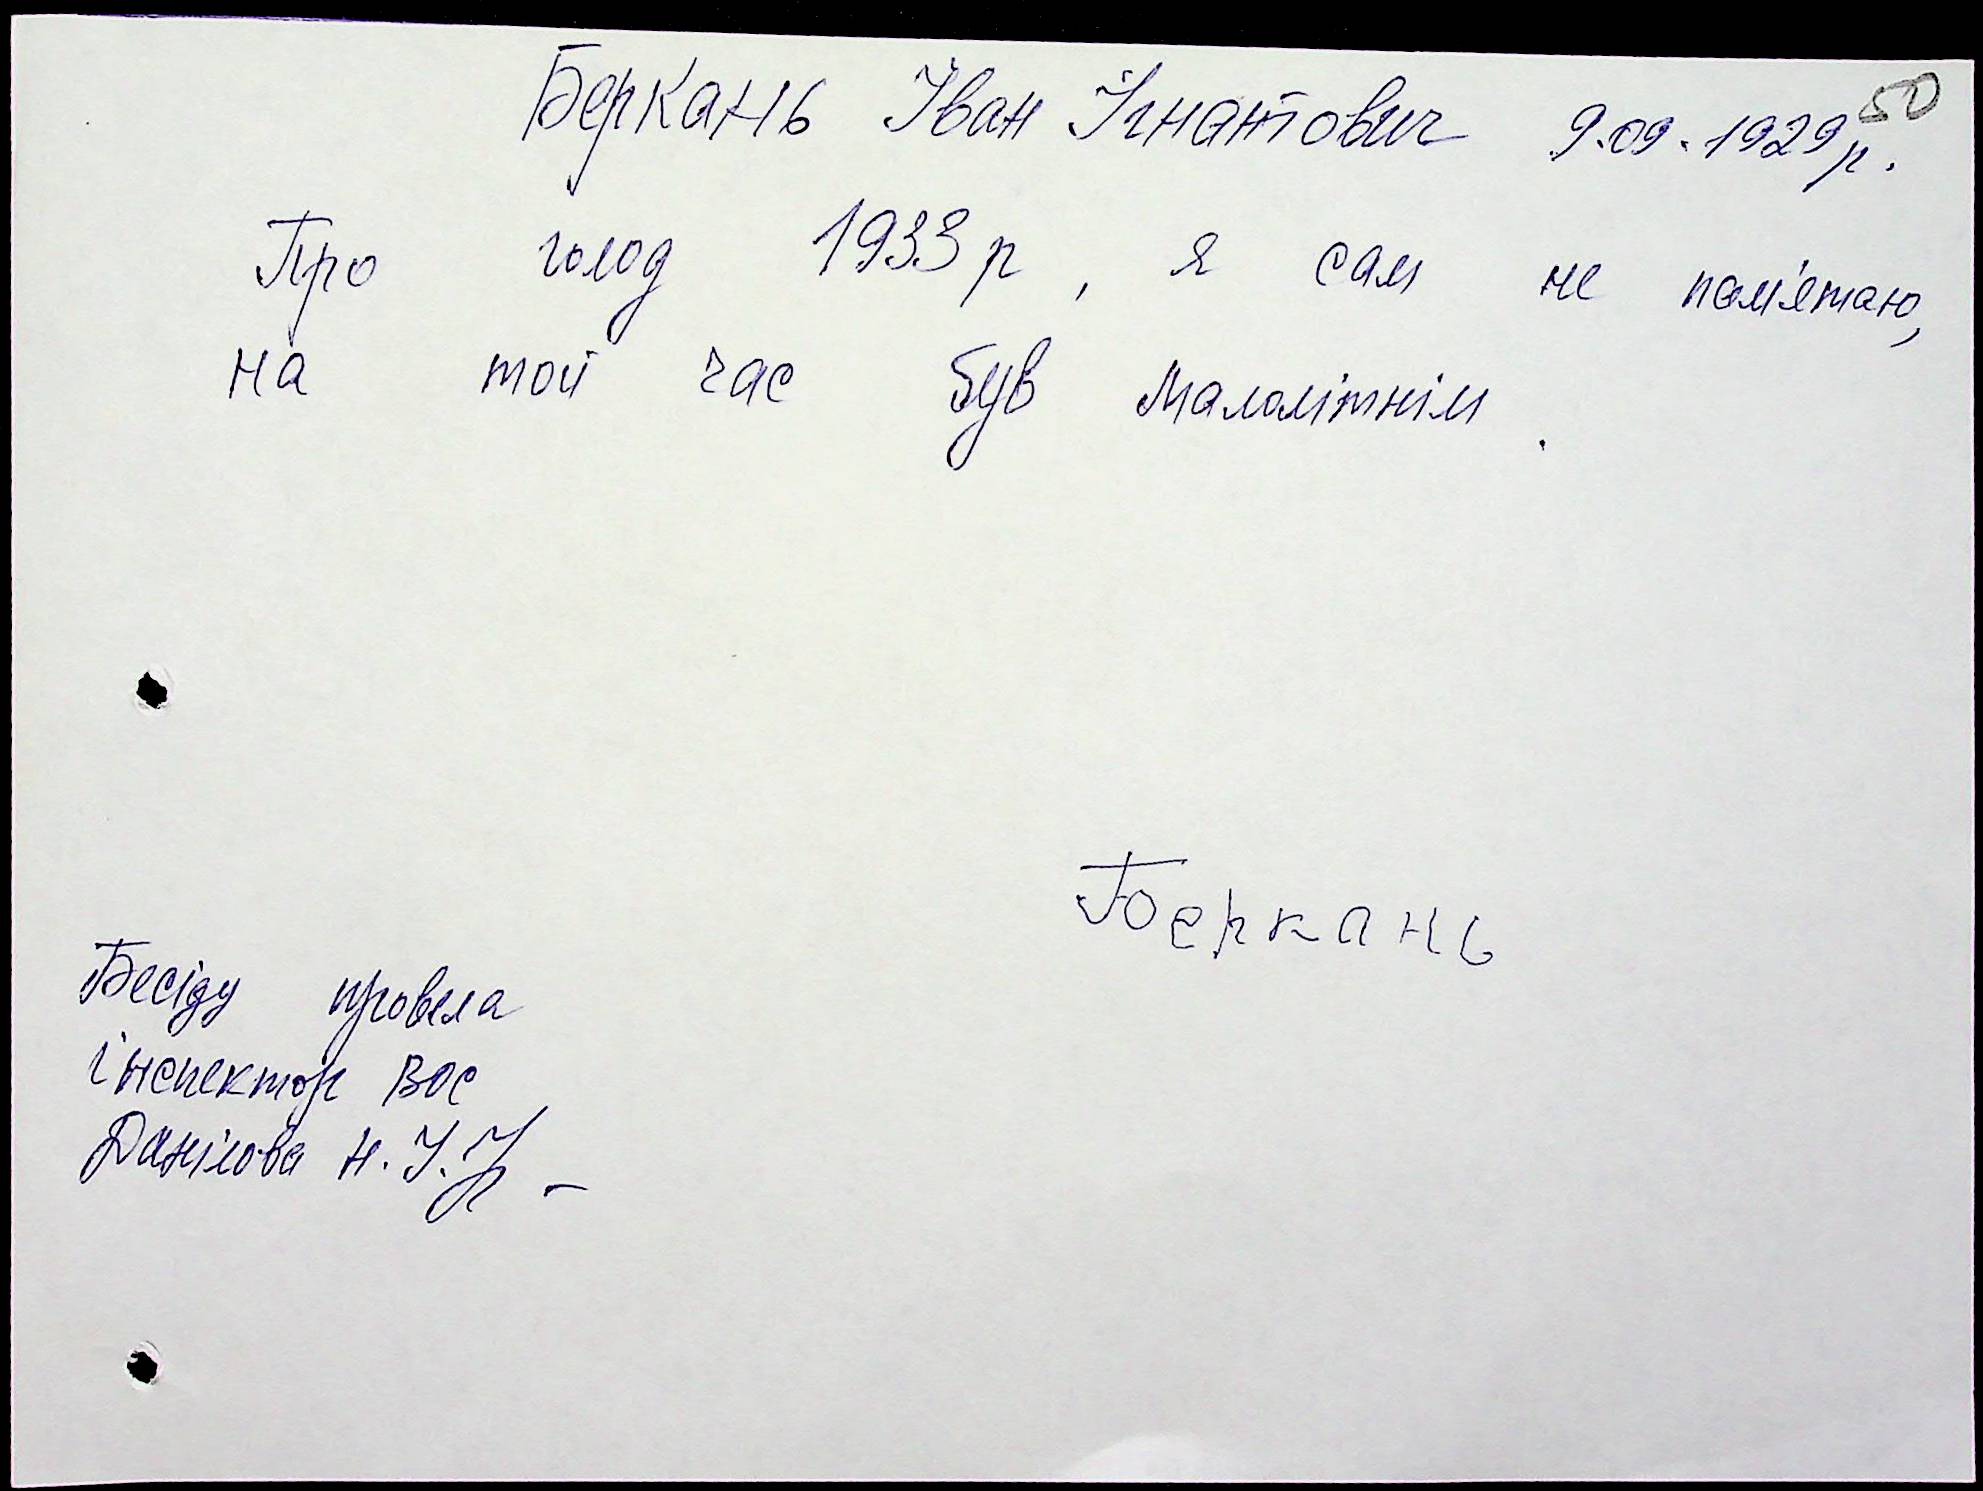 50
Беркань Іван Ігнатович 9.09.1929р.
Про голод 1933р, я сам не пам'ятаю,
на той час був малолітнім.
Беркань
Бесіду провела
інспектор ВОС
Данілова Н.І.